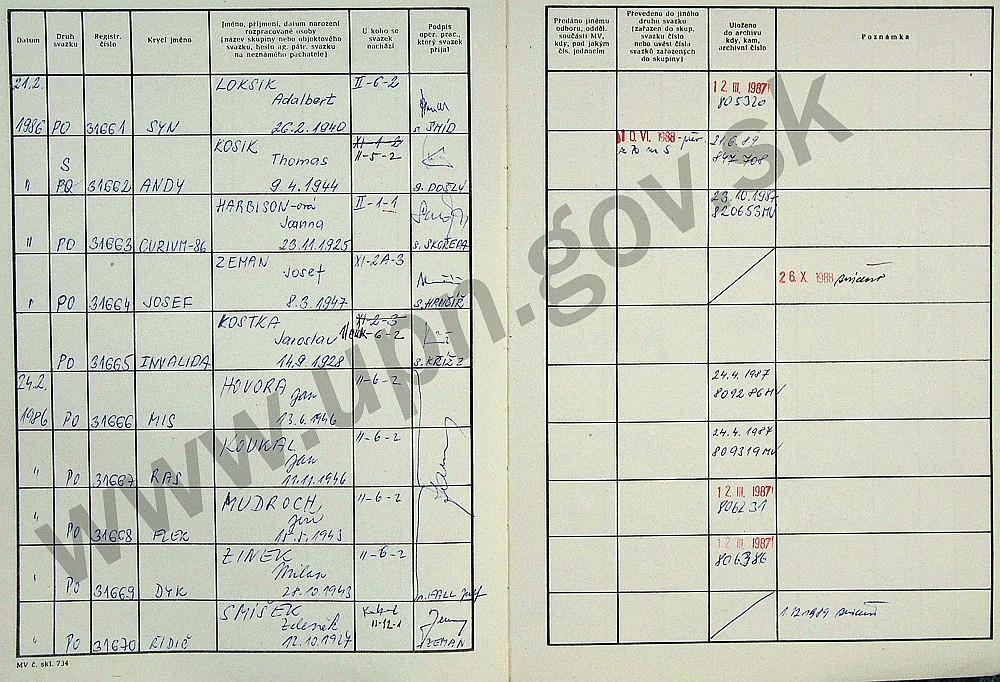 Datum
Druh svazku
Registr. číslo
Krycí jméno
Jméno, příjmení, datum narození rozpracované osoby (název skupiny nebo objektového svazku, heslo ag. pátr. svazku na neznámého pachatele)
U koho se svazek nachází
Podpis oper. prac., který svazek přijal
Předáno jinému odboru, odděl. součásti MV, kdy, pod jakým čís. jednacím
Převedeno do jiného druhu svazku (zařazen do skup. svazku číslo nebo uvést čísla svazků zařazených do skupiny)
Uloženo do archivu kdy, kam, archivní číslo
Poznámka
21.2. LOKSIK II-6-2 12. III. 1987
Adalbert 805320
1986 PO 31661 SYN 26.2.1940 s. ŠMÍD
KOSIK XI-1-2 10. VI. 1988 21.6.89
S Thomas II-5-2 847 708
" PO 31662 ANDY 9.4.1944 s. DOŠLÝ
HARBISON-ová II-1-1 23.10.1987
Joanna 820653MV
" PO 31663 CURIUM-86 23.11.1925 s. SKOŘEPA
ZEMAN XI-2A-3
Josef 26. X. 1988 zničeno
" PO 31664 JOSEF 8.3.1947
KOSTKA XI-2-3
Jaroslav
PO 31665 INVALIDA 14.9.1928 s. KŘÍŽ
24.2. HOVORA II-6-2 24.4.1987
Jan 809286MV
1986 PO 31666 MIS 13.6.1946
KOUKAL II-6-2 24.4.1987
Jan 809319MV
" PO 31667 RAS 11.11.1946
MUDROCH, II-6-2 12. III. 1987
Jiří 806231
" PO 31668 FLEK
ZINEK II-6-2 12. III. 1987
Milan 806386
" PO 31669 DYK 28.10.1943
SMÍŠEK II-12-1 1.12.1989 zničeno
Zdeněk
" PO 31670 ŘIDIČ 12.10.1927 ZEMAN
MV č. skl. 734
www.upn.gov.sk